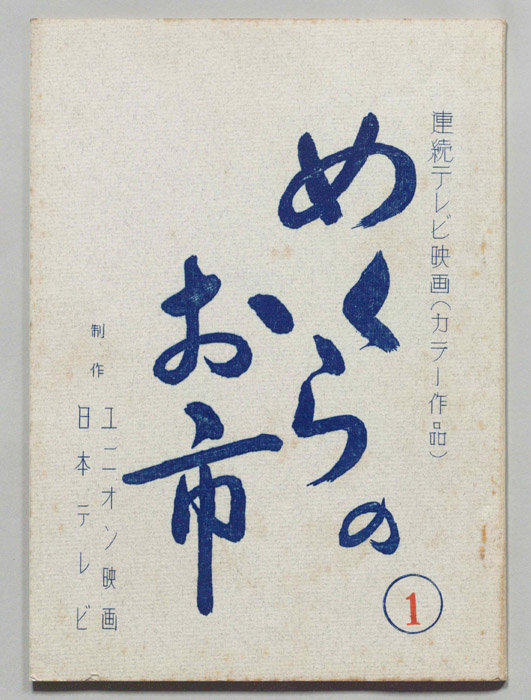 連続テレビ映画(カラー作品)
めくらの
お市
1
制作
ユニオン映画
日本テレビ